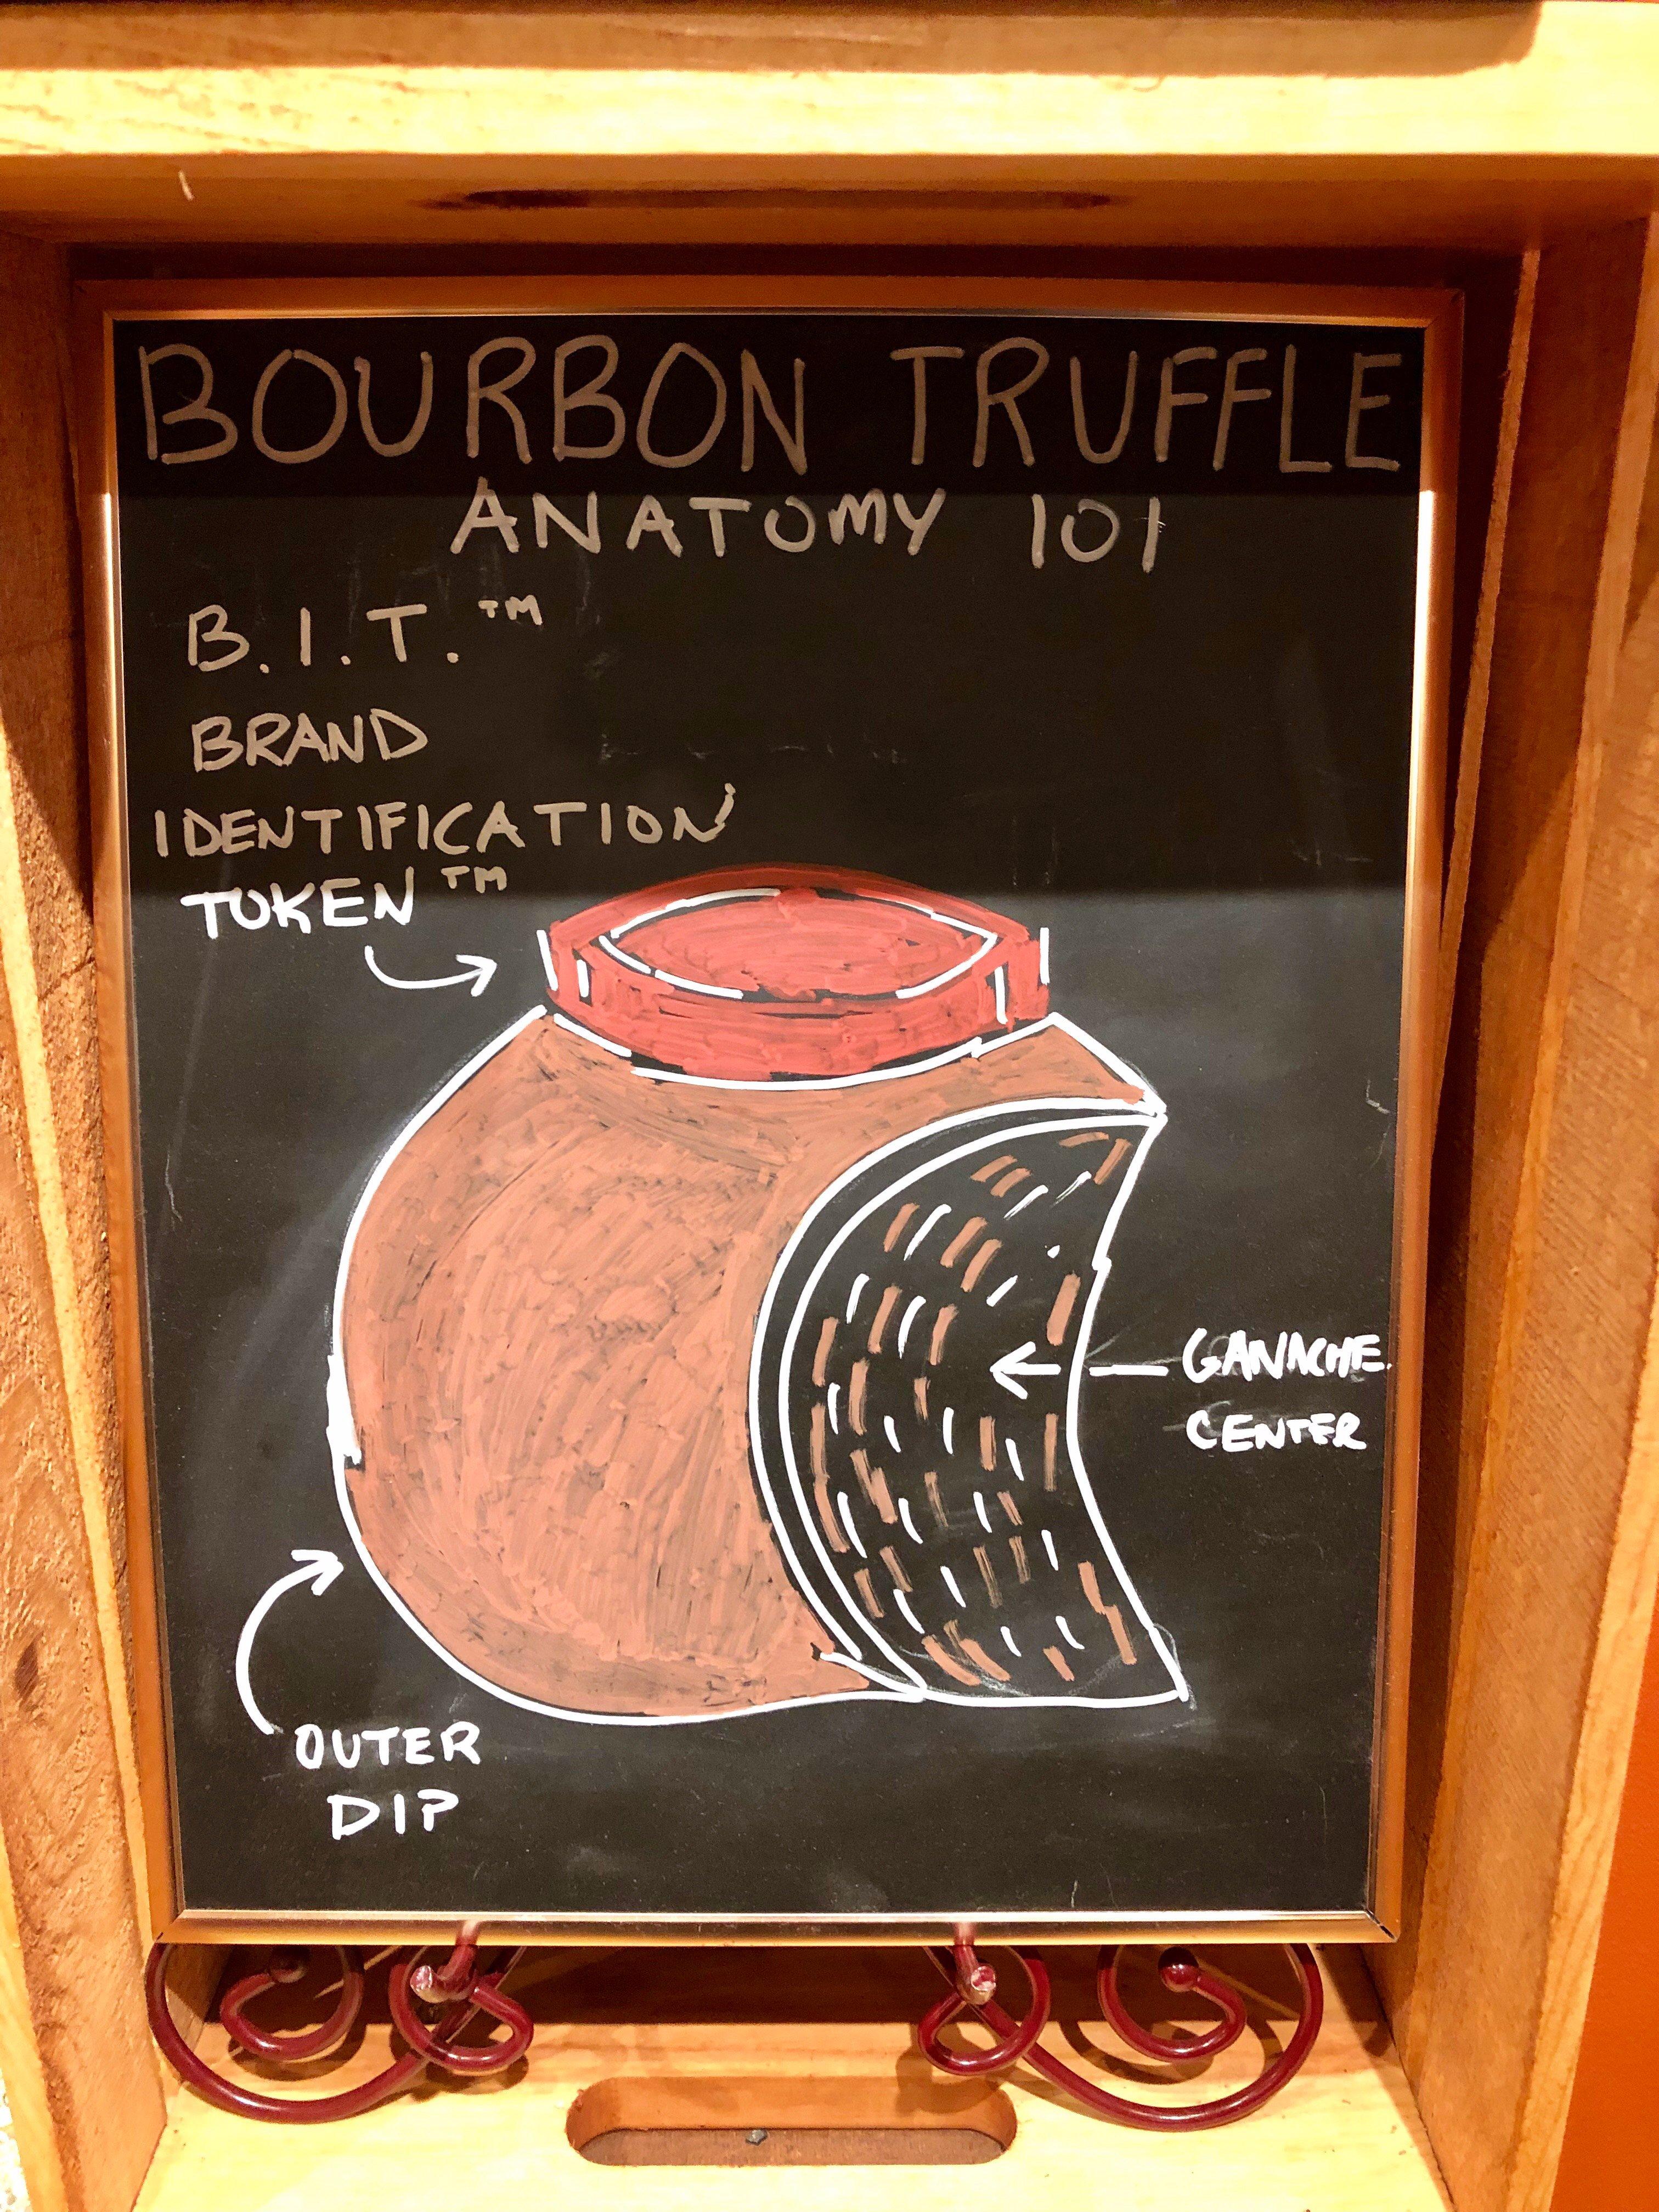 BOURBON TRUFFLE
ANATOMY 101
B.I.T.™
BRAND
IDENTIFICATION
TOKEN™
GANACHE
CENTER
OUTER
DIP